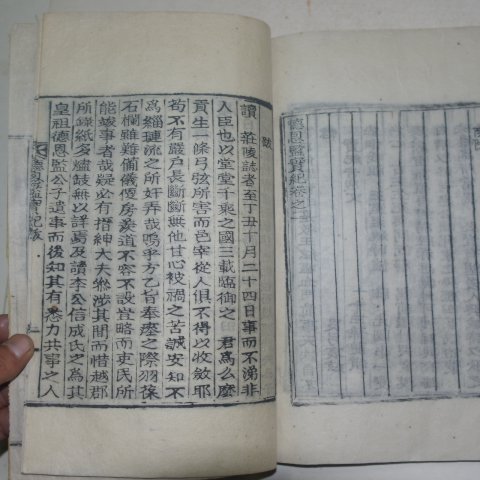 德恩監實紀卷之
跋
讀 莊陵誌者至丁丑十月二十四日事而不涕非
人臣也以堂堂千乘之國三載臨御之 君爲么麽
貢生一條弓弦所害而邑宰從人俱不得以收斂耶
苟不有嚴戶長斷斷無他甘心被禍之苦誠安知不
爲緇璉流之所奸弄哉嗚乎方乙旨奉瘞之際羽葆
石欄雖難備儀便房羨道不容不設置略而吏民所
能竣事者哉疑必有搢紳大夫參涉其間而惜越郡
所錄紙多燼缺無以詳焉及讀李公信成氏之爲其
皇祖德恩監公子遺事而後知其有悉力共事之人